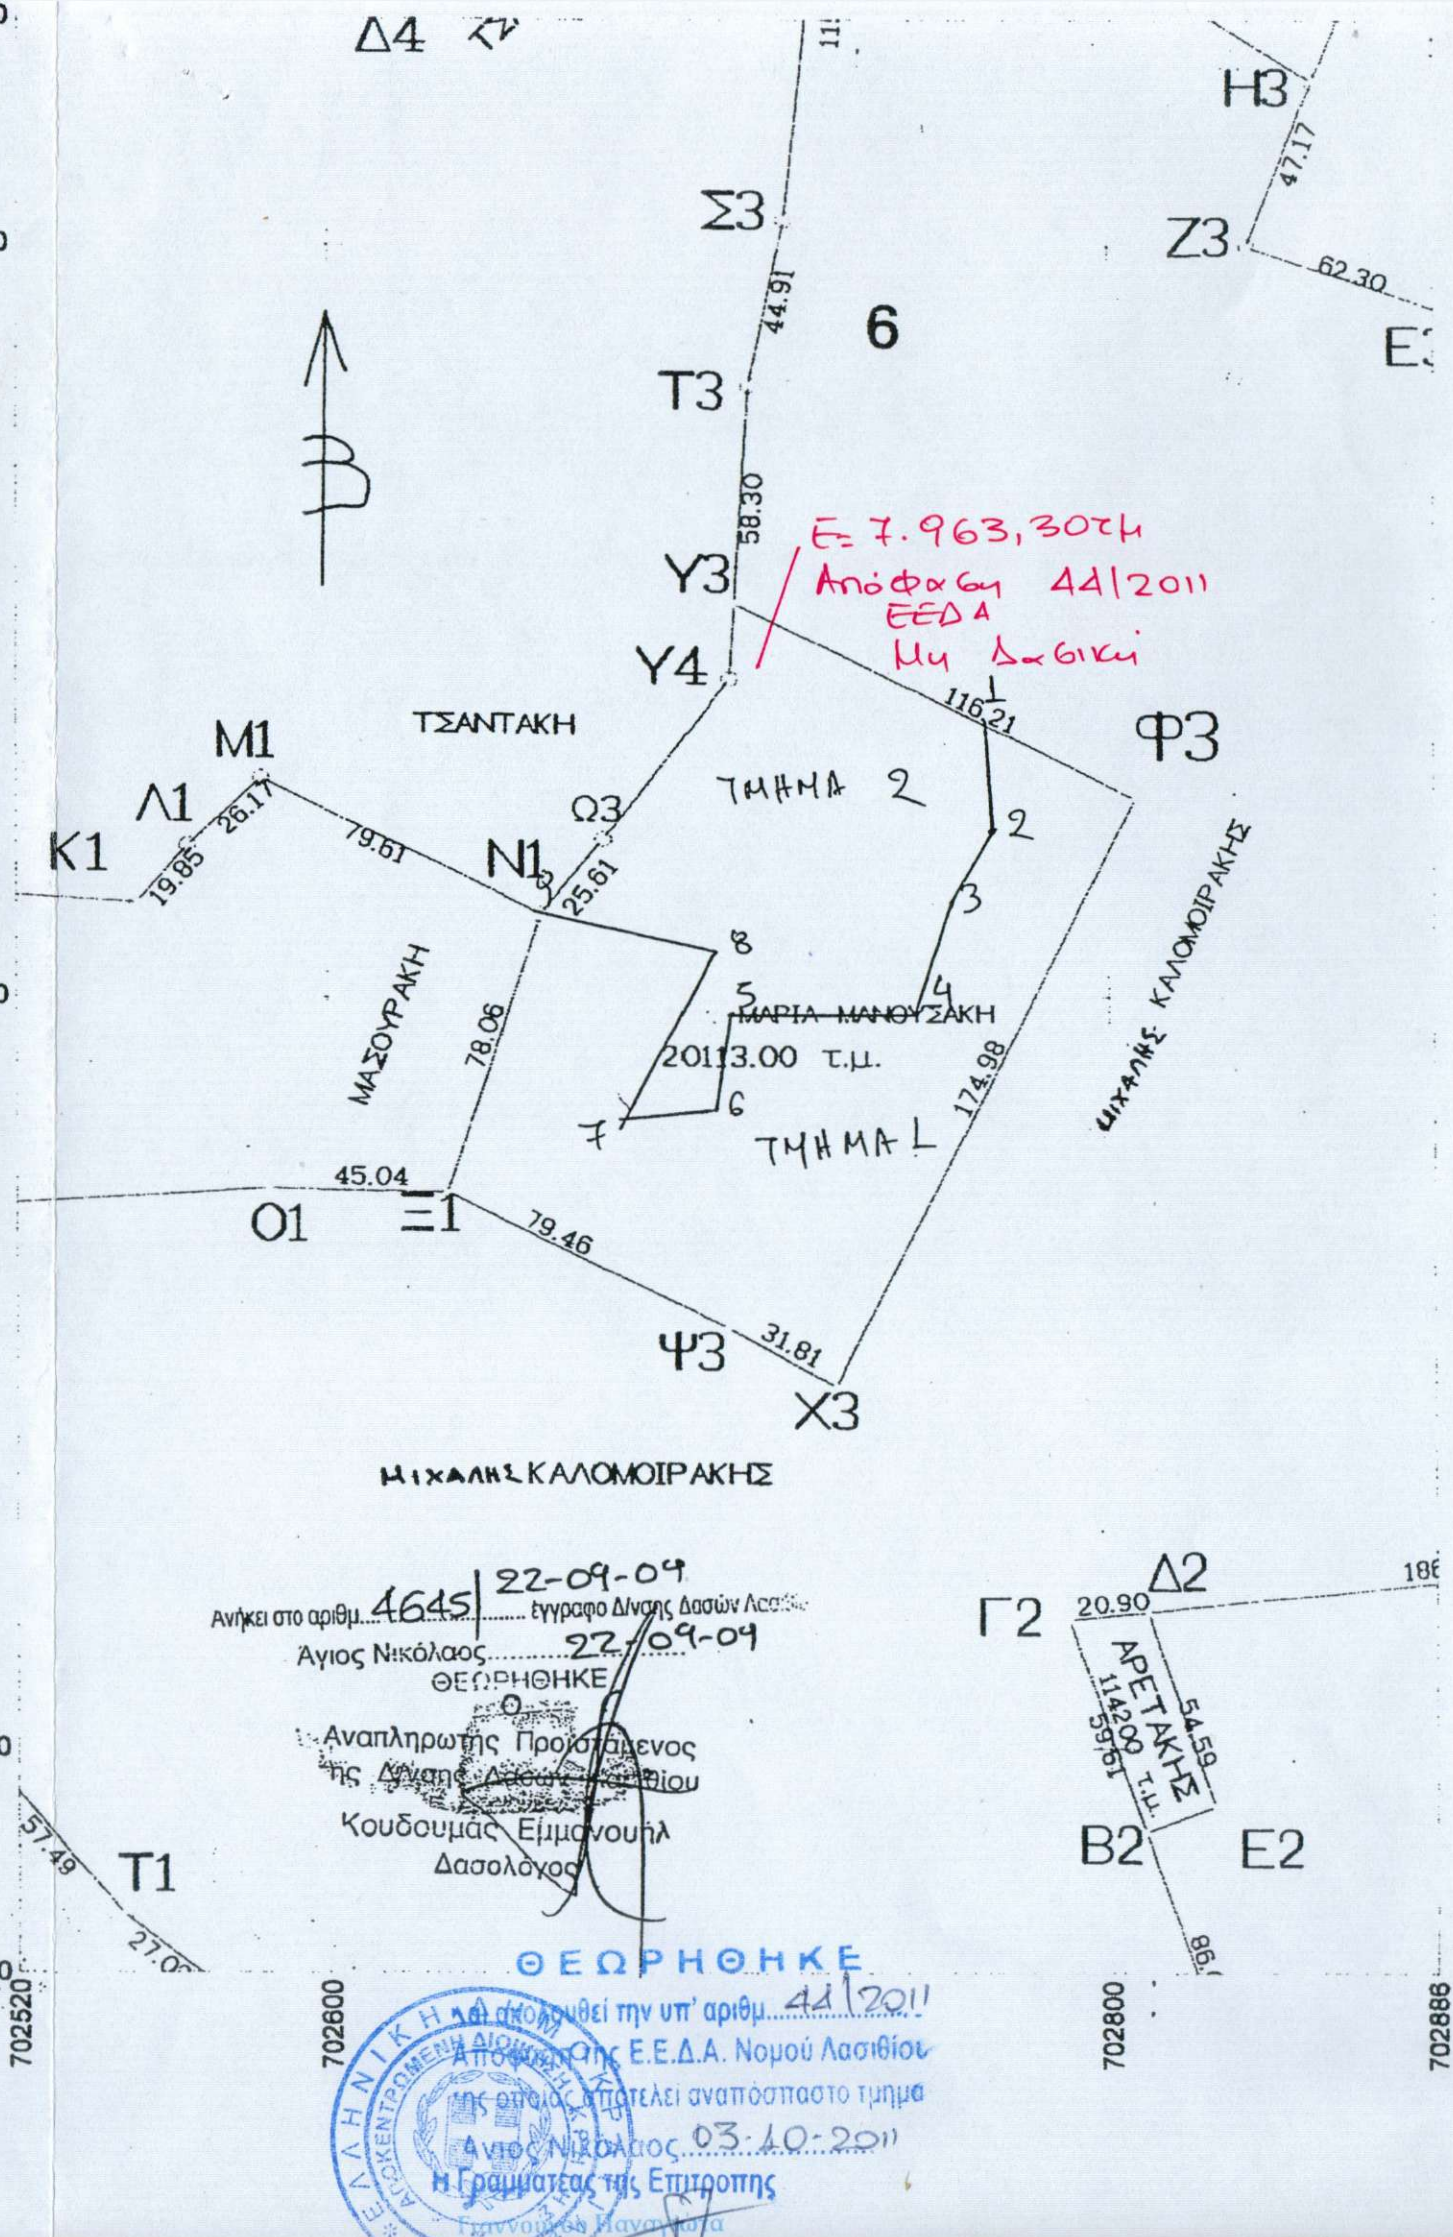 Δ4
11
Η3
47.17
Σ3
Ζ3
62.30
44.91
6
Ε3
Τ3
Β
58.30
Ε= 7.963,30τμ
Υ3
Απόφαση 44/2011
ΕΕΔΑ
Υ4
Μη Δασική
1
116.21
ΤΣΑΝΤΑΚΗ
Φ3
Μ1
ΤΜΗΜΑ 2
Λ1
26.17
Ω3
2
Κ1
79.61
19.85
Ν1
9
25.61
3
8
ΜΑΣΟΥΡΑΚΗ
78.06
5
4
ΜΑΡΙΑ ΜΑΝΟΥΣΑΚΗ
20113.00 τ.μ.
174.98
ΜΙΧΑΛΗΣ ΚΑΛΟΜΟΙΡΑΚΗΣ
6
7
ΤΜΗΜΑ 1
45.04
Ο1
Ξ1
79.46
Ψ3
31.81
Χ3
ΜΙΧΑΛΗΣ ΚΑΛΟΜΟΙΡΑΚΗΣ
Ανήκει στο αριθμ. 4645/22-09-09 έγγραφο Δ/νσης Δασών
Άγιος Νικόλαος 22-09-09
ΘΕΩΡΗΘΗΚΕ
Ο
Αναπληρωτής Προϊστάμενος
της Δ/νσης Δασών Λασιθίου
Κουδουμάς Εμμανουήλ
Δασολόγος
Γ2
20.90
Δ2
186
ΑΡΕΤΑΚΗΣ
114200 τ.μ.
59.61
54.59
Β2
Ε2
86.
57.49
Τ1
27.0
702520
702600
702800
702886
ΘΕΩΡΗΘΗΚΕ
και ακολουθεί την υπ' αριθμ. 44/2011
Απόφαση της Ε.Ε.Δ.Α. Νομού Λασιθίου
της οποίας αποτελεί αναπόσπαστο τμήμα
Αγιος Νικόλαος 03-10-2011
Η Γραμματέας της Επιτροπής
ΕΛΛΗΝΙΚΗ ΔΗΜΟΚΡΑΤΙΑ
ΑΠΟΚΕΝΤΡΩΜΕΝΗ ΔΙΟΙΚΗΣΗ